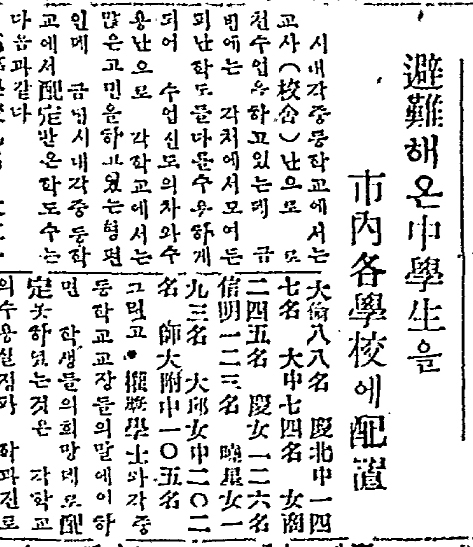 避難해온中學生을
市內各學校에配置
시내각중등학교에서는
교사(校舍)난으로 로
천수업을하고있는데 금
번에는 각처에서모여든
피난학도들다를수용하게
되어 수업진도의차와수
용난으로 각학교에서는
많은고민을하고있는형편
인데 금번시내각중등학
교에서配定받은학도수는
다음과같다
大倫八八名 慶北中一四
七名 大中七四名 女商
二四五名 慶女一二六名
信明一二三名 曉星女一
九三名 大邱女中二〇二
名 師大附中一〇五名
그리고 獎學士와각중
등학교교장들의말에의하
면 학생들의희망대로配
定못하였는것은 각학교
의수용실정과 학과진로